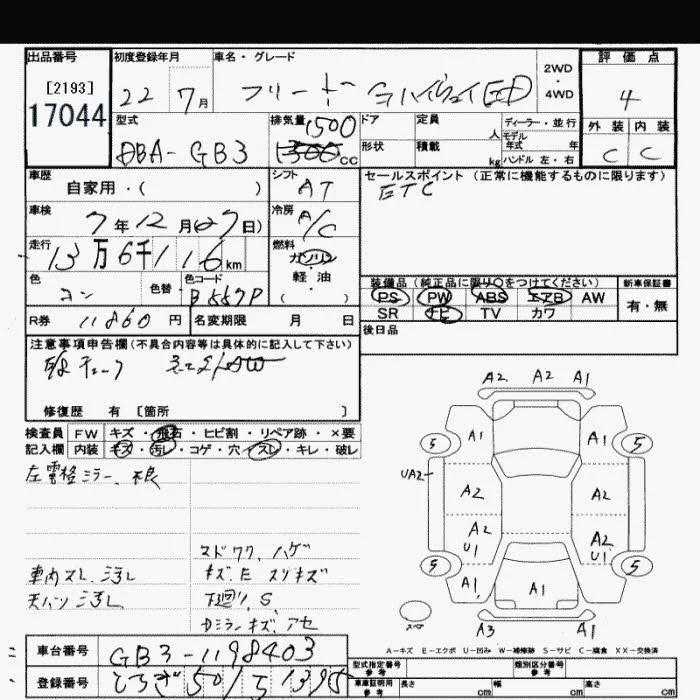 出品番号 初度登録年月 車名・グレード 2WD・4WD 評価点
[2193]
17044
22 7月 フリード 4
型式 排気量 ドア 定員 人 ディーラー・並行 外装 内装
モデル年式 年
DBA-GB3 1500 1300cc 形状 積載 kg ハンドル 左・右 C C
車歴 シフト セールスポイント(正常に機能するものに限ります)
自家用・( ) AT ETC
車検 冷房
7年12月(27日) A/C
走行 燃料
13万6千116km ガソリン・軽油・( )
色 色替 色コード 装備品(純正品に限り○をつけてください) 新車保証書
コン B557P PS PW ABS エアB AW 有・無
SR ナビ TV カワ
R券 11860円 名変期限 月 日 後日品
注意事項申告欄(不具合内容等は具体的に記入して下さい)
修復歴 有 [箇所 ]
検査員記入欄 FW キズ・飛石・ヒビ割・リペア跡・×要
内装 キズ・汚レ・コゲ・穴・スレ・キレ・破レ
左電格ミラー、不良
マドワク、ハゲ
車内スレ、汚レ キズ、E スリキズ
天バリ汚レ 下廻り、S
Dミラーキズ、アセ
A2 A2 A1
5 A1 A1 5
UA2
A2 A2
A2 U1 A2 U1
5 A1 A1 5
スペア A3 A1
A-キズ E-エクボ U-凹み W-補修跡 S-サビ C-腐食 XX-交換済
車台番号 GB3-1198403
型式指定番号 参考 類別区分番号 参考
登録番号 とちぎ501
車庫証明用 参考 長さ cm 幅 cm 高さ cm